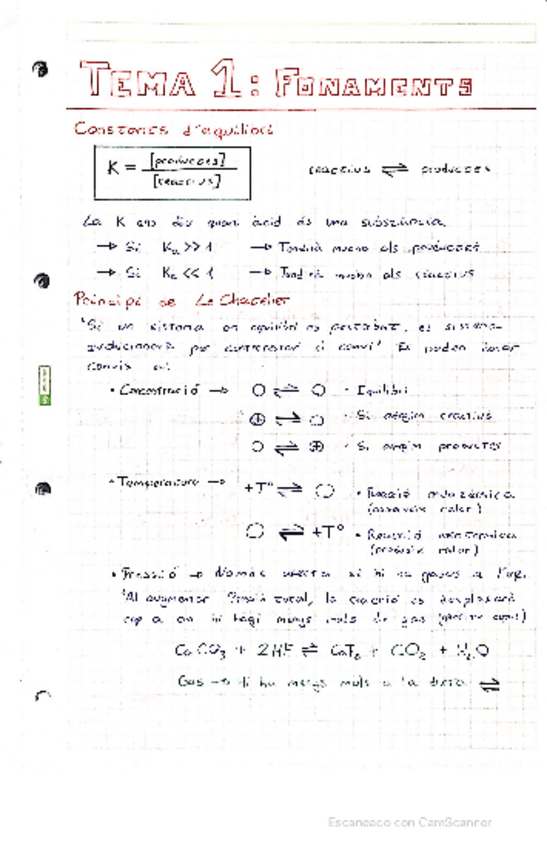 TEMA 1: FONAMENTS
Constants d'equilibri
K = [productes] / [reactius]
reactius ⇌ productes
La K ens diu quan àcid és una substància.
→ Si Ka >> 1 → Tendrà més als productes
→ Si Ka << 1 → Tendrà als reactius
Principi de Le Chatelier
"Si un sistema en equilibri es pertorbat, el sistema
evolucionarà per contrarestar el canvi" Es poden
canvis al:
• Concentració → ○ ⇌ ○ • Equilibri
⊕ ⇌ ○ • Si afegim reactius
○ ⇌ ⊕ • Si afegim productes
• Temperatura → +Tº ⇌ ○ • Reacció endotèrmica
(absorveix calor)
○ ⇌ +Tº • Reacció exotèrmica
(produeix calor)
• Pressió → Només afecta si hi ha gasos a l'eq.
"Al augmentar P total, la reacció es desplaçarà
cap a on hi hagi menys mols de gas
CaCO3 + 2HF ⇌ CaF2 + CO2 + H2O
Gas → Hi ha menys mols a la ⇌
Escaneado con CamScanner